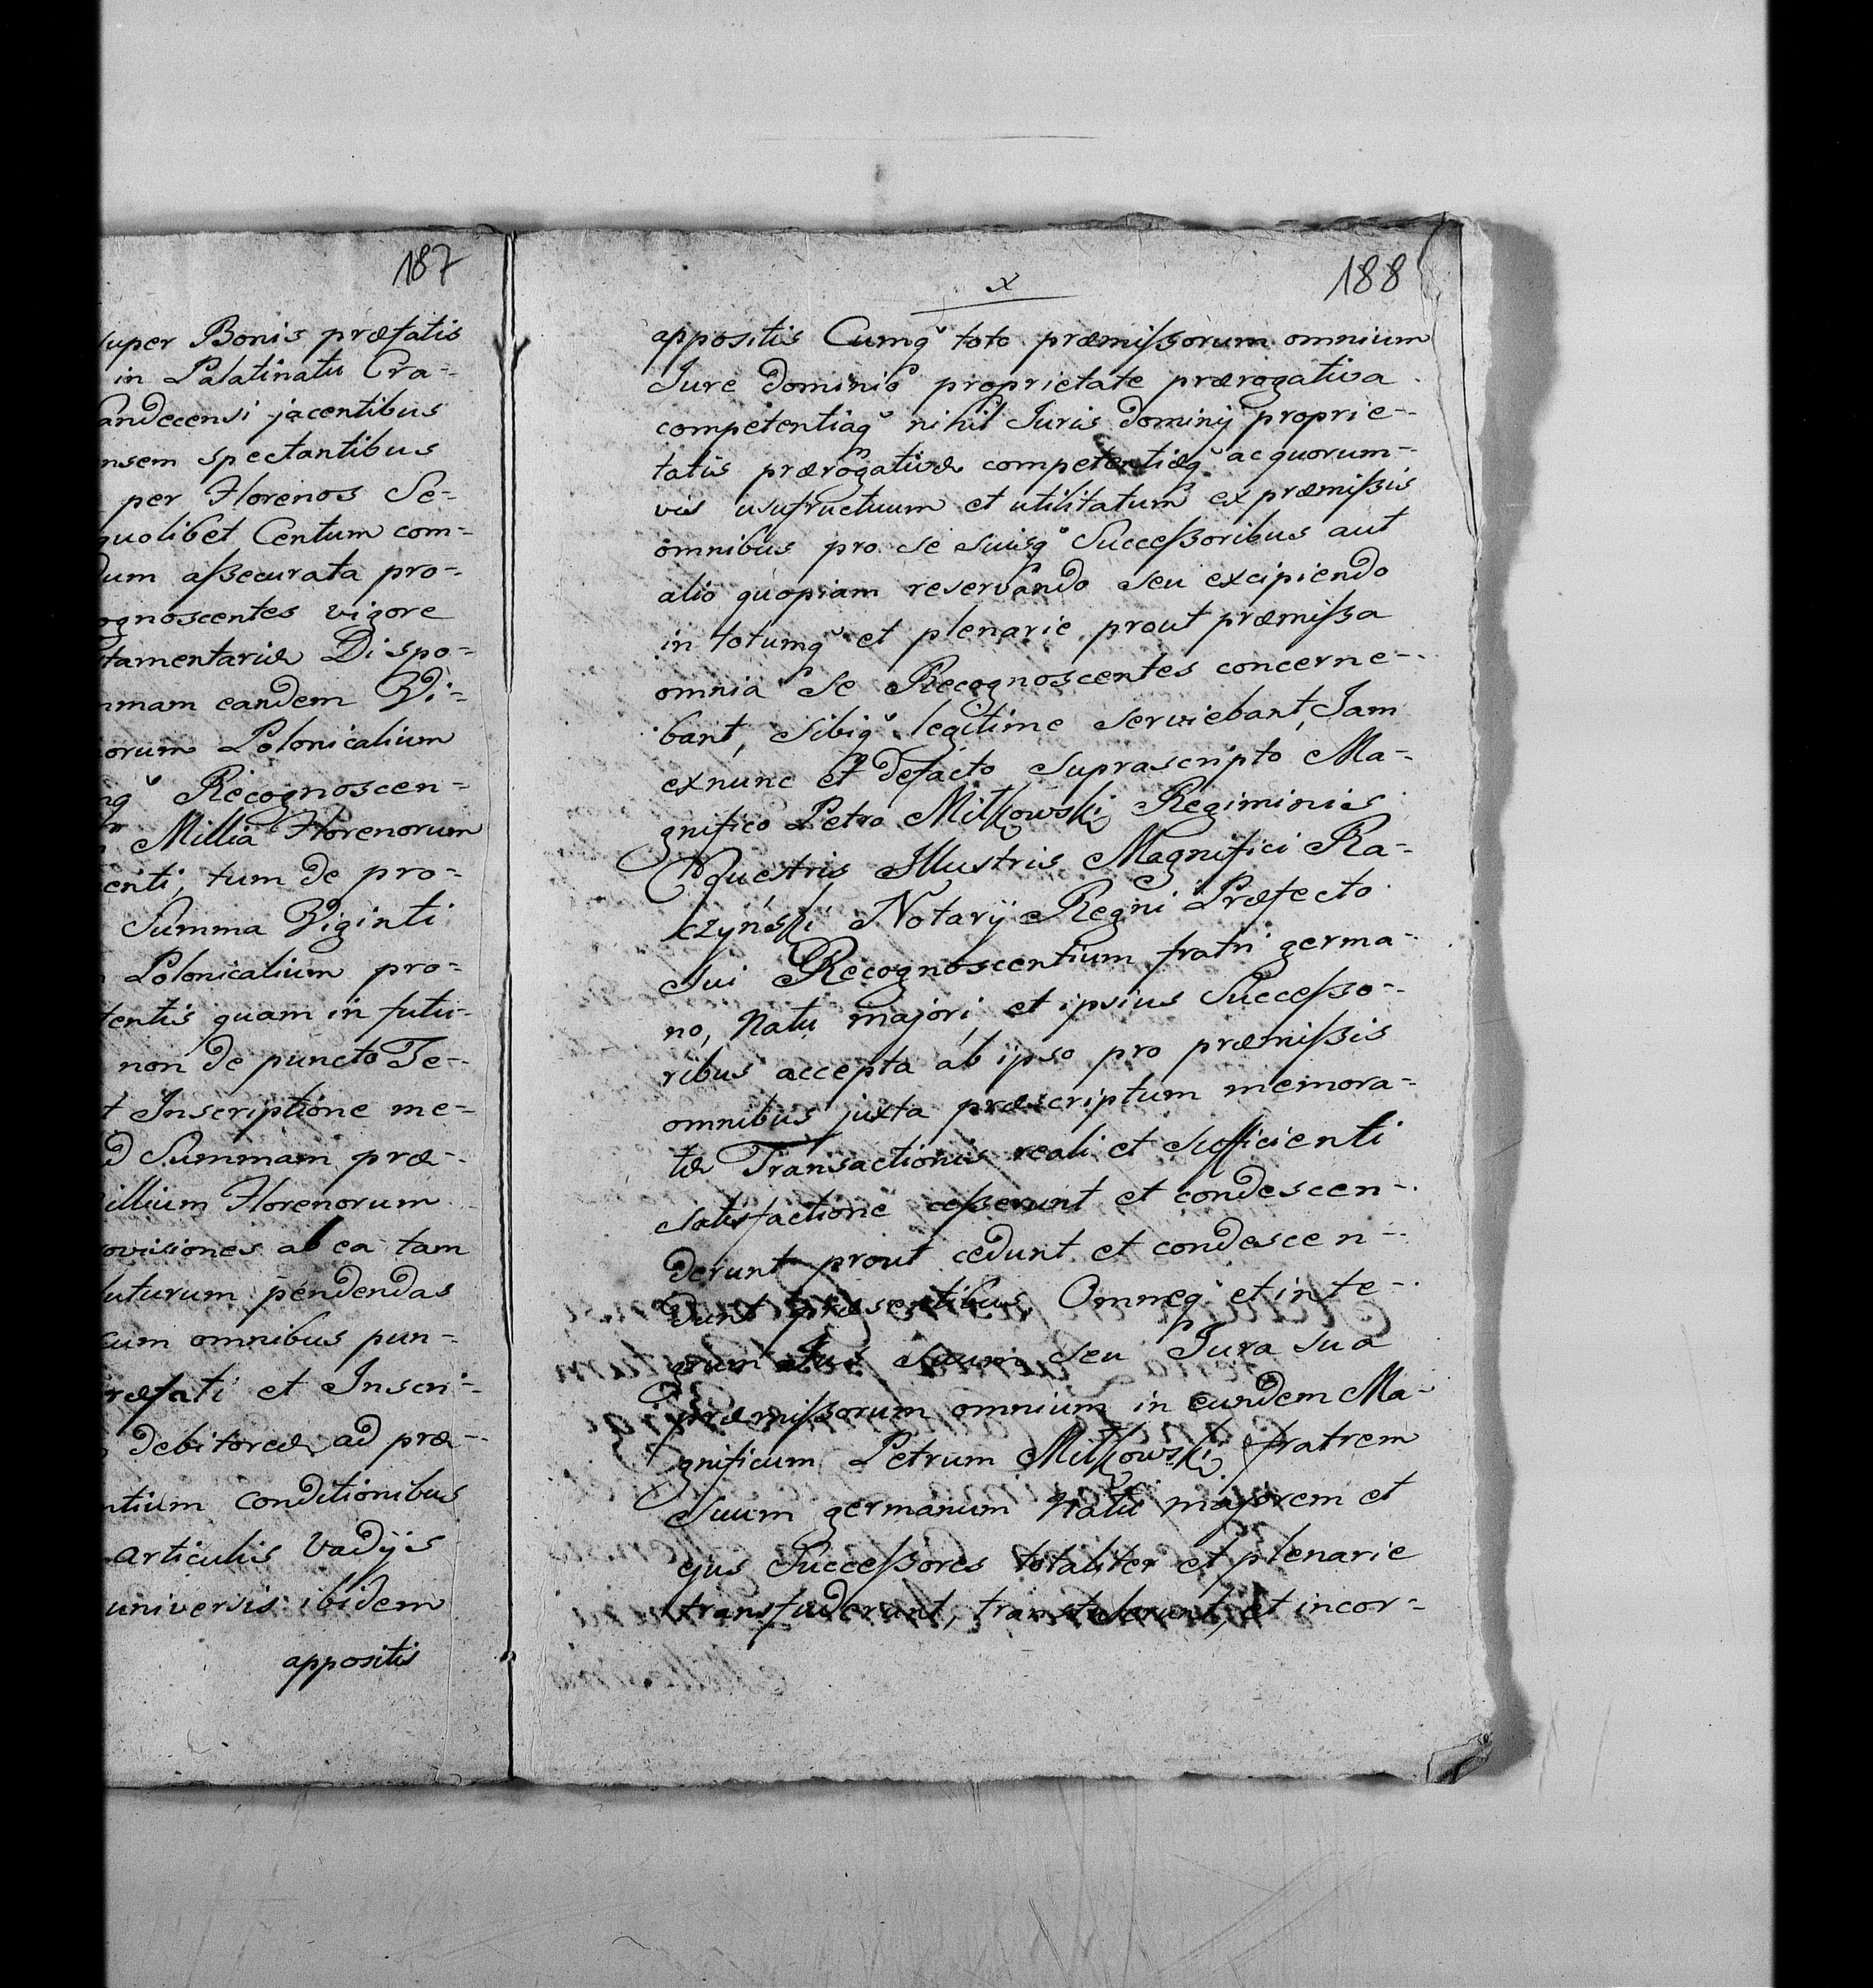 187
super Bonis præfatis
in Palatinatu Cra-
andecensi jacentibus
nsem spectantibus
per Florenos Se-
quolibet Centum com-
dum aſsecurata pro-
ognoscentes vigore
tamentariæ Dispo-
mmam eandem Vi-
orum Polonicalium
nqꝫ Recognoscen-
Millia Florenorum
enti, tum de pro-
Summa Viginti
Polonicalium pro-
tentis quam in futu-
non de puncto Te-
t Inscriptione me-
d Summam præ-
illium Florenorum
ovisiones ab ea tam
futurum pendendas
cum omnibus pun-
ræfati et Inscri-
debitoreæ ad præ-
ntium conditionibus
articulis Vadijs
universis ibidem
appositis
x
188
appositis Cumqꝫ toto præmiſsorum omnium
Jure dominio proprietate prærogativa
competentiaqꝫ nihil Juris dominij proprie-
tatis prærogativæ competentiæqꝫ ac quorum-
vis usufructuum et utilitatum ex præmiſsis
omnibus pro se suisqꝫ Succeſsoribus aut
alio quopiam reservando seu excipiendo
in totumqꝫ et plenarie prout præmiſsa
omnia Se Recognoscentes concerne-
bant, sibiqꝫ legitime serviebant, Jam
exnunc et defacto suprascripto Ma-
gnifico Petro Miłkowski Regiminis
Equestris Illustris Magnifici Ra-
czyński Notarij Regni Præfecto
sui Recognoscentium fratri germa-
no, natu majori, et ipsius Succeſso-
ribus accepta ab ipso pro præmiſsis
omnibus juxta præscriptum memora-
tæ Transactionis reali et sufficienti
satisfactione ceſserunt et condescen-
derunt prout cedunt et condescen-
dunt præsentibus, Omneqꝫ et inte-
grum Jus suum seu Jura sua
præmiſsorum omnium in eundem Ma-
gnificum Petrum Miłkowski fratrem
suum germanum natu majorem et
ejus Succeſsores totaliter et plenarie
transfuderunt, transtulerunt, et incor-